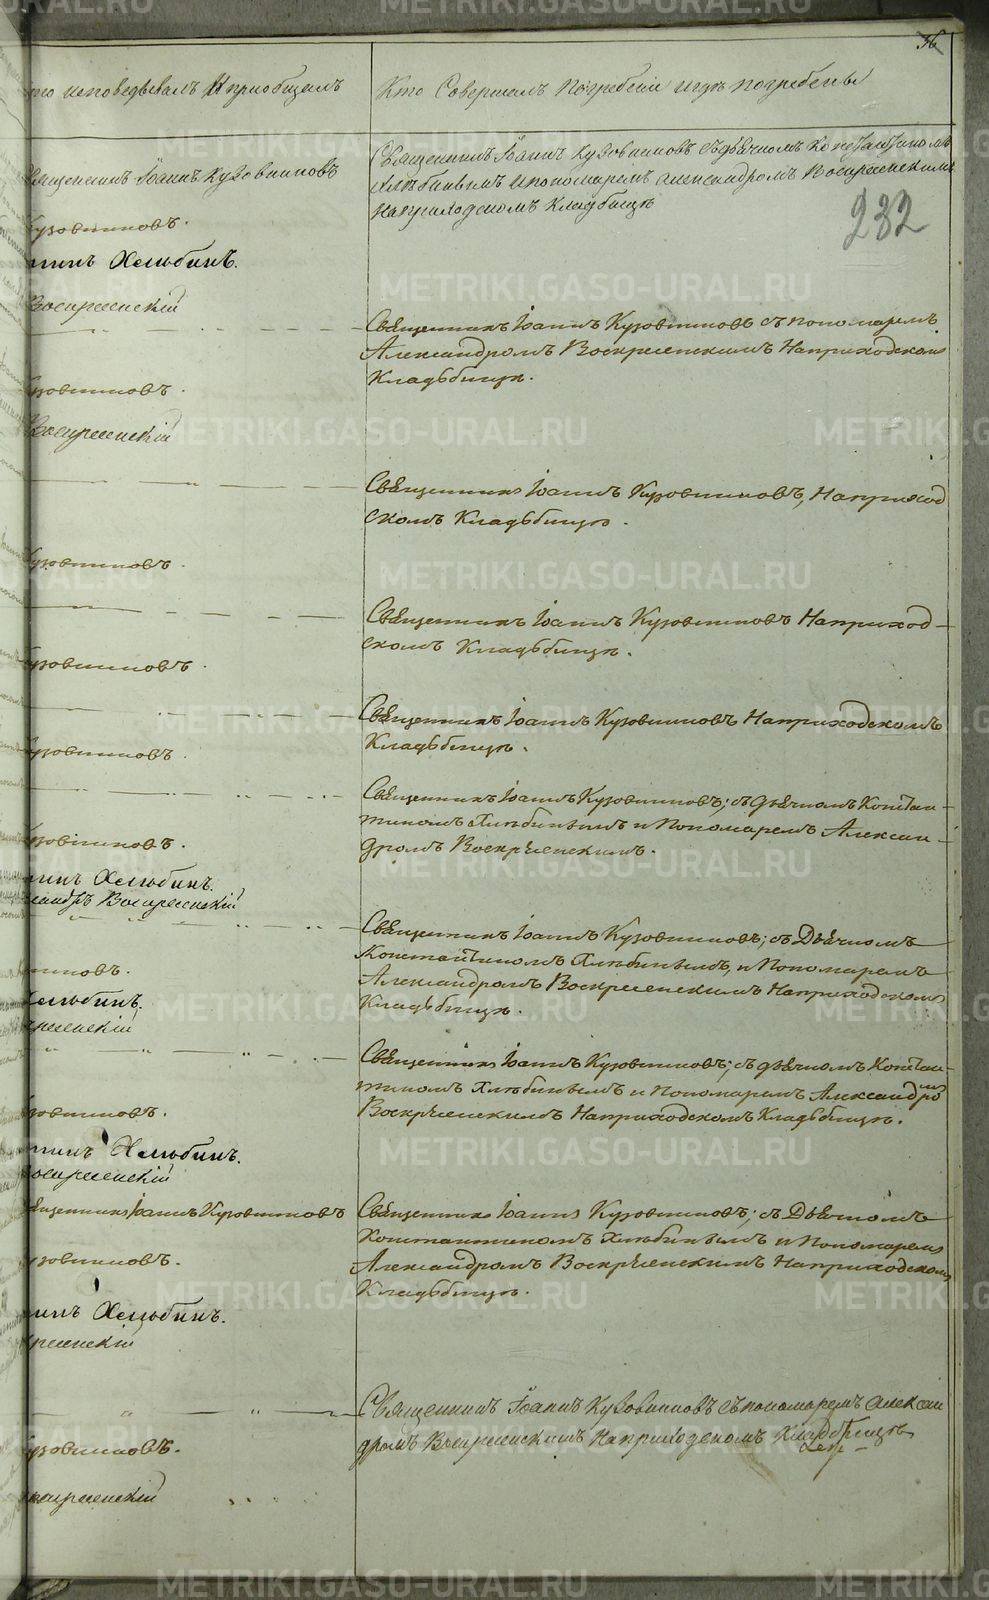 36
исповедывалъ и приобщалъ
Кто Совершалъ Погребенiе и гдѣ погребены
Священникъ Iоаннъ Кузовниковъ
Священникъ Iоаннъ Кузовниковъ съ дьячкомъ Константиномъ
Хлѣбинымъ и пономаремъ Александромъ Воскресенскимъ
на приходскомъ Кладбищѣ
232
Кузовниковъ.
Хлѣбинъ.
Воскресенскiй
Священникъ Iоаннъ Кузовниковъ съ пономаремъ
Александромъ Воскресенскимъ На приходскомъ
Кладъбищѣ.
Кузовниковъ.
Воскресенскiй
Священникъ Iоаннъ Кузовниковъ, На приход
скомъ Кладъбищѣ.
Кузовниковъ.
Священникъ Iоаннъ Кузовниковъ На приход-
скомъ Кладъбищѣ.
Кузовниковъ.
Священникъ Iоаннъ Кузовниковъ На приходскомъ
Кладъбищѣ.
Кузовниковъ.
Священникъ Iоаннъ Кузовниковъ; съ дьячкомъ Констан-
тиномъ Хлѣбинымъ и Пономаремъ Алексан-
дромъ Воскресенскимъ.
Кузовниковъ.
Хлѣбинъ.
Воскресенскiй
Священникъ Iоаннъ Кузовниковъ; съ Дьячкомъ
Константиномъ Хлѣбинымъ, и Пономаремъ
Александромъ Воскресенскимъ На приходскомъ
Кладъбищѣ.
Хлѣбинъ.
Священникъ Iоаннъ Кузовниковъ; съ дьячкомъ Констан-
тиномъ Хлѣбинымъ и Пономаремъ Александромъ
Воскресенскимъ На приходскомъ Кладъбищѣ.
Кузовниковъ.
Хлѣбинъ.
Воскресенскiй
Священникъ Iоаннъ Кузовниковъ
Священникъ Iоаннъ Кузовниковъ; съ Дьячкомъ
Константиномъ Хлѣбинымъ и Пономаремъ
Александромъ Воскресенскимъ На приходскомъ
Кладъбищѣ.
Кузовниковъ.
Хлѣбинъ.
Священникъ Iоаннъ Кузовниковъ съ пономаремъ Алексан
дромъ Воскресенскимъ На приходскомъ Кладбищѣ
Кузовниковъ.
Воскресенскiй
METRIKI.GASO-URAL.RU